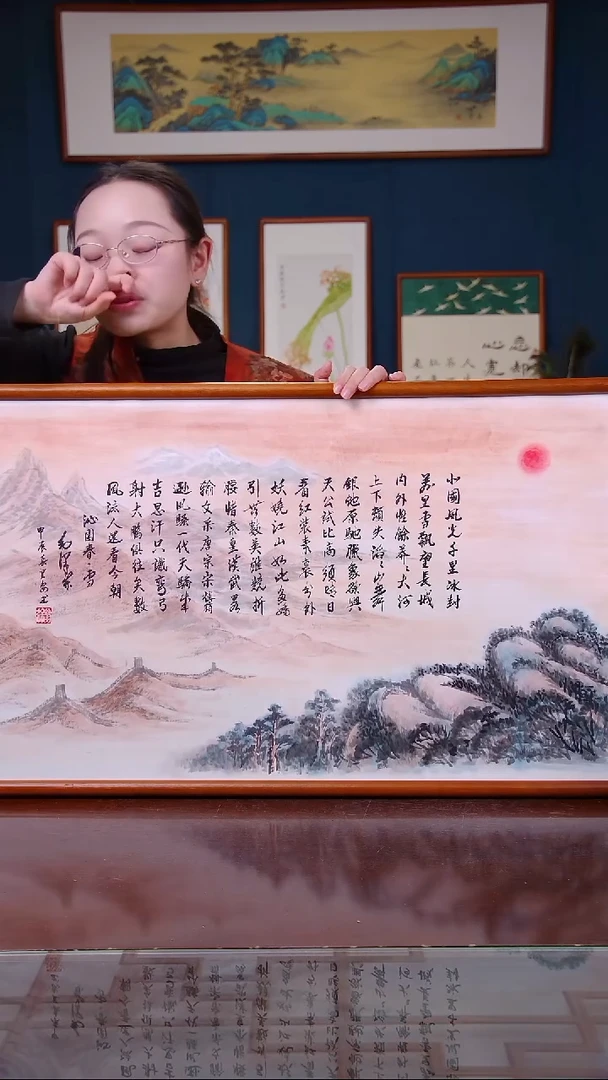 北國風光千里冰封
萬里雪飄望長城
內外惟餘莽々大河
上下頓失滔々山舞
銀蛇原馳臘象欲與
天公試比高須晴日
看紅裝素裹分外
妖嬈江山如此多嬌
引無數英雄競折
腰惜秦皇漢武略
輸文采唐宗宋祖稍
遜風騷一代天驕成
吉思汗只識彎弓
射大鵰俱往矣數
風流人物還看今朝
沁園春·雪
毛澤東
甲辰年